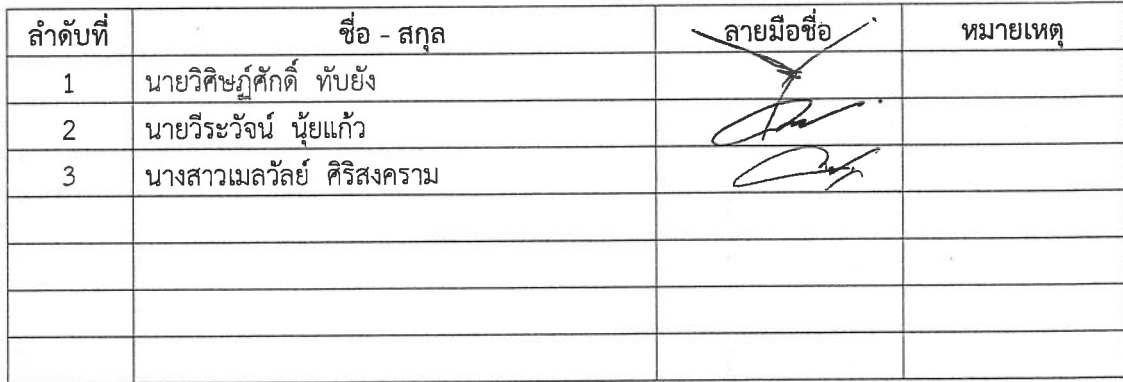 ลำดับที่ ชื่อ - สกุล ลายมือชื่อ หมายเหตุ
1 นายวิศิษฎ์ศักดิ์ ทับยัง
2 นายวีระวัจน์ นุ้ยแก้ว
3 นางสาวเมลวัลย์ ศิริสงคราม